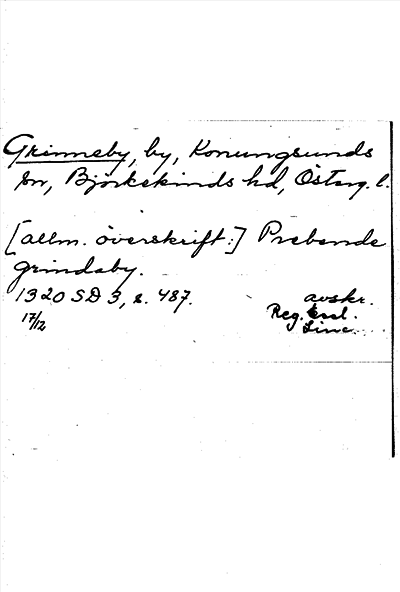 Grinneby, by, Konungsunds
sn, Björkekinds hd, Österg. l.
[allm. överskrift:] Prebende
grindaby.
1320 SD 3, s. 487. avskr.
17/12 Reg. Eccl.
Linc.